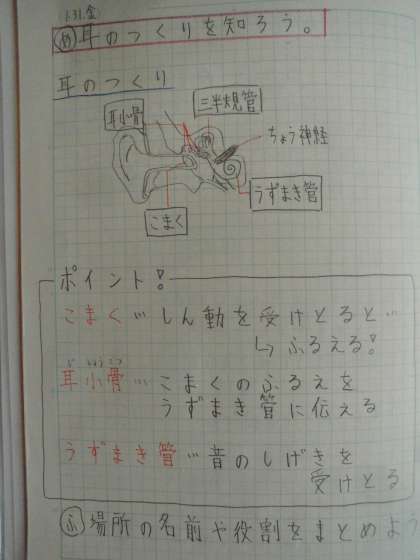 1.31.金
め 耳のつくりを知ろう。
耳のつくり
耳小骨
三半規管
ちょう神経
うずまき管
こまく
ポイント!
こまく…しん動を受けとると…
↳ふるえる!
じしょうこつ
耳小骨…こまくのふるえを
うずまき管に伝える
うずまき管…音のしげきを
受けとる
ふ 場所の名前や役割をまとめよう